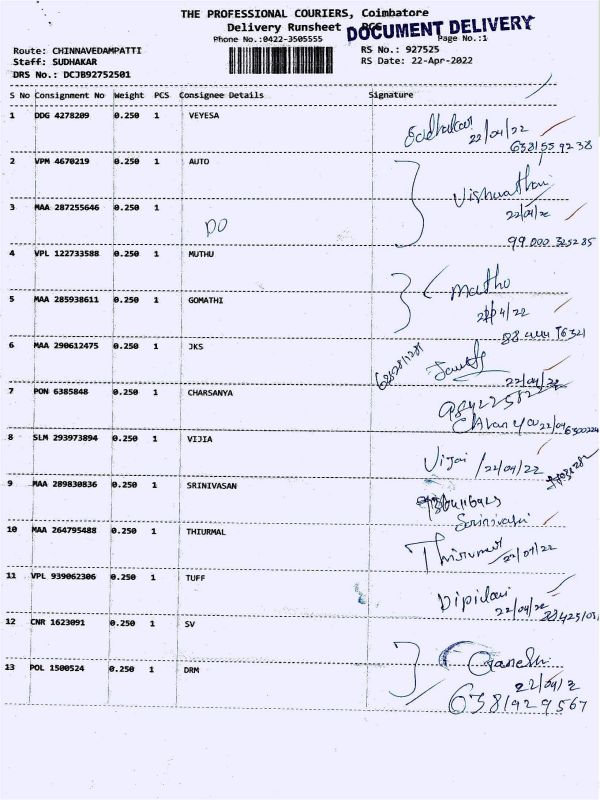 THE PROFESSIONAL COURIERS, Coimbatore
Delivery Runsheet
DOCUMENT DELIVERY
Phone No.:0422-3505555
Page No.:1
Route: CHINNAVEDAMPATTI
RS No.: 927525
Staff: SUDHAKAR
RS Date: 22-Apr-2022
DRS No.: DCJB92752501
S No Consignment No Weight PCS Consignee Details Signature
1 DDG 4278209 0.250 1 VEYESA
Sadhakar
22/04/22
2 VPM 4670219 0.250 1 AUTO
3 MAA 287255646 0.250 1
DO
4 VPL 122733588 0.250 1 MUTHU
Matho
5 MAA 285938611 0.250 1 GOMATHI
6 MAA 290612475 0.250 1 JKS
22/04/22
7 PON 6385848 0.250 1 CHARSANYA
8 SLM 293973894 0.250 1 VIJIA
Vijai /22/04/22
9 MAA 289830836 0.250 1 SRINIVASAN
10 MAA 264795488 0.250 1 THIURMAL
11 VPL 939062306 0.250 1 TUFF
22/04/22
12 CNR 1623091 0.250 1 SV
Ganesh
13 POL 1500524 0.250 1 DRM
6381929567